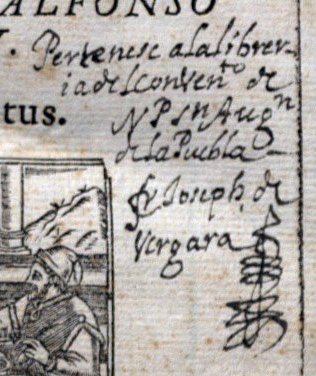 ALFONSO
Pertenesc a la librer-
ia del conven^to de
N P S^n Aug^n
tus.
de la Puebla
fr Joseph de
Vergara